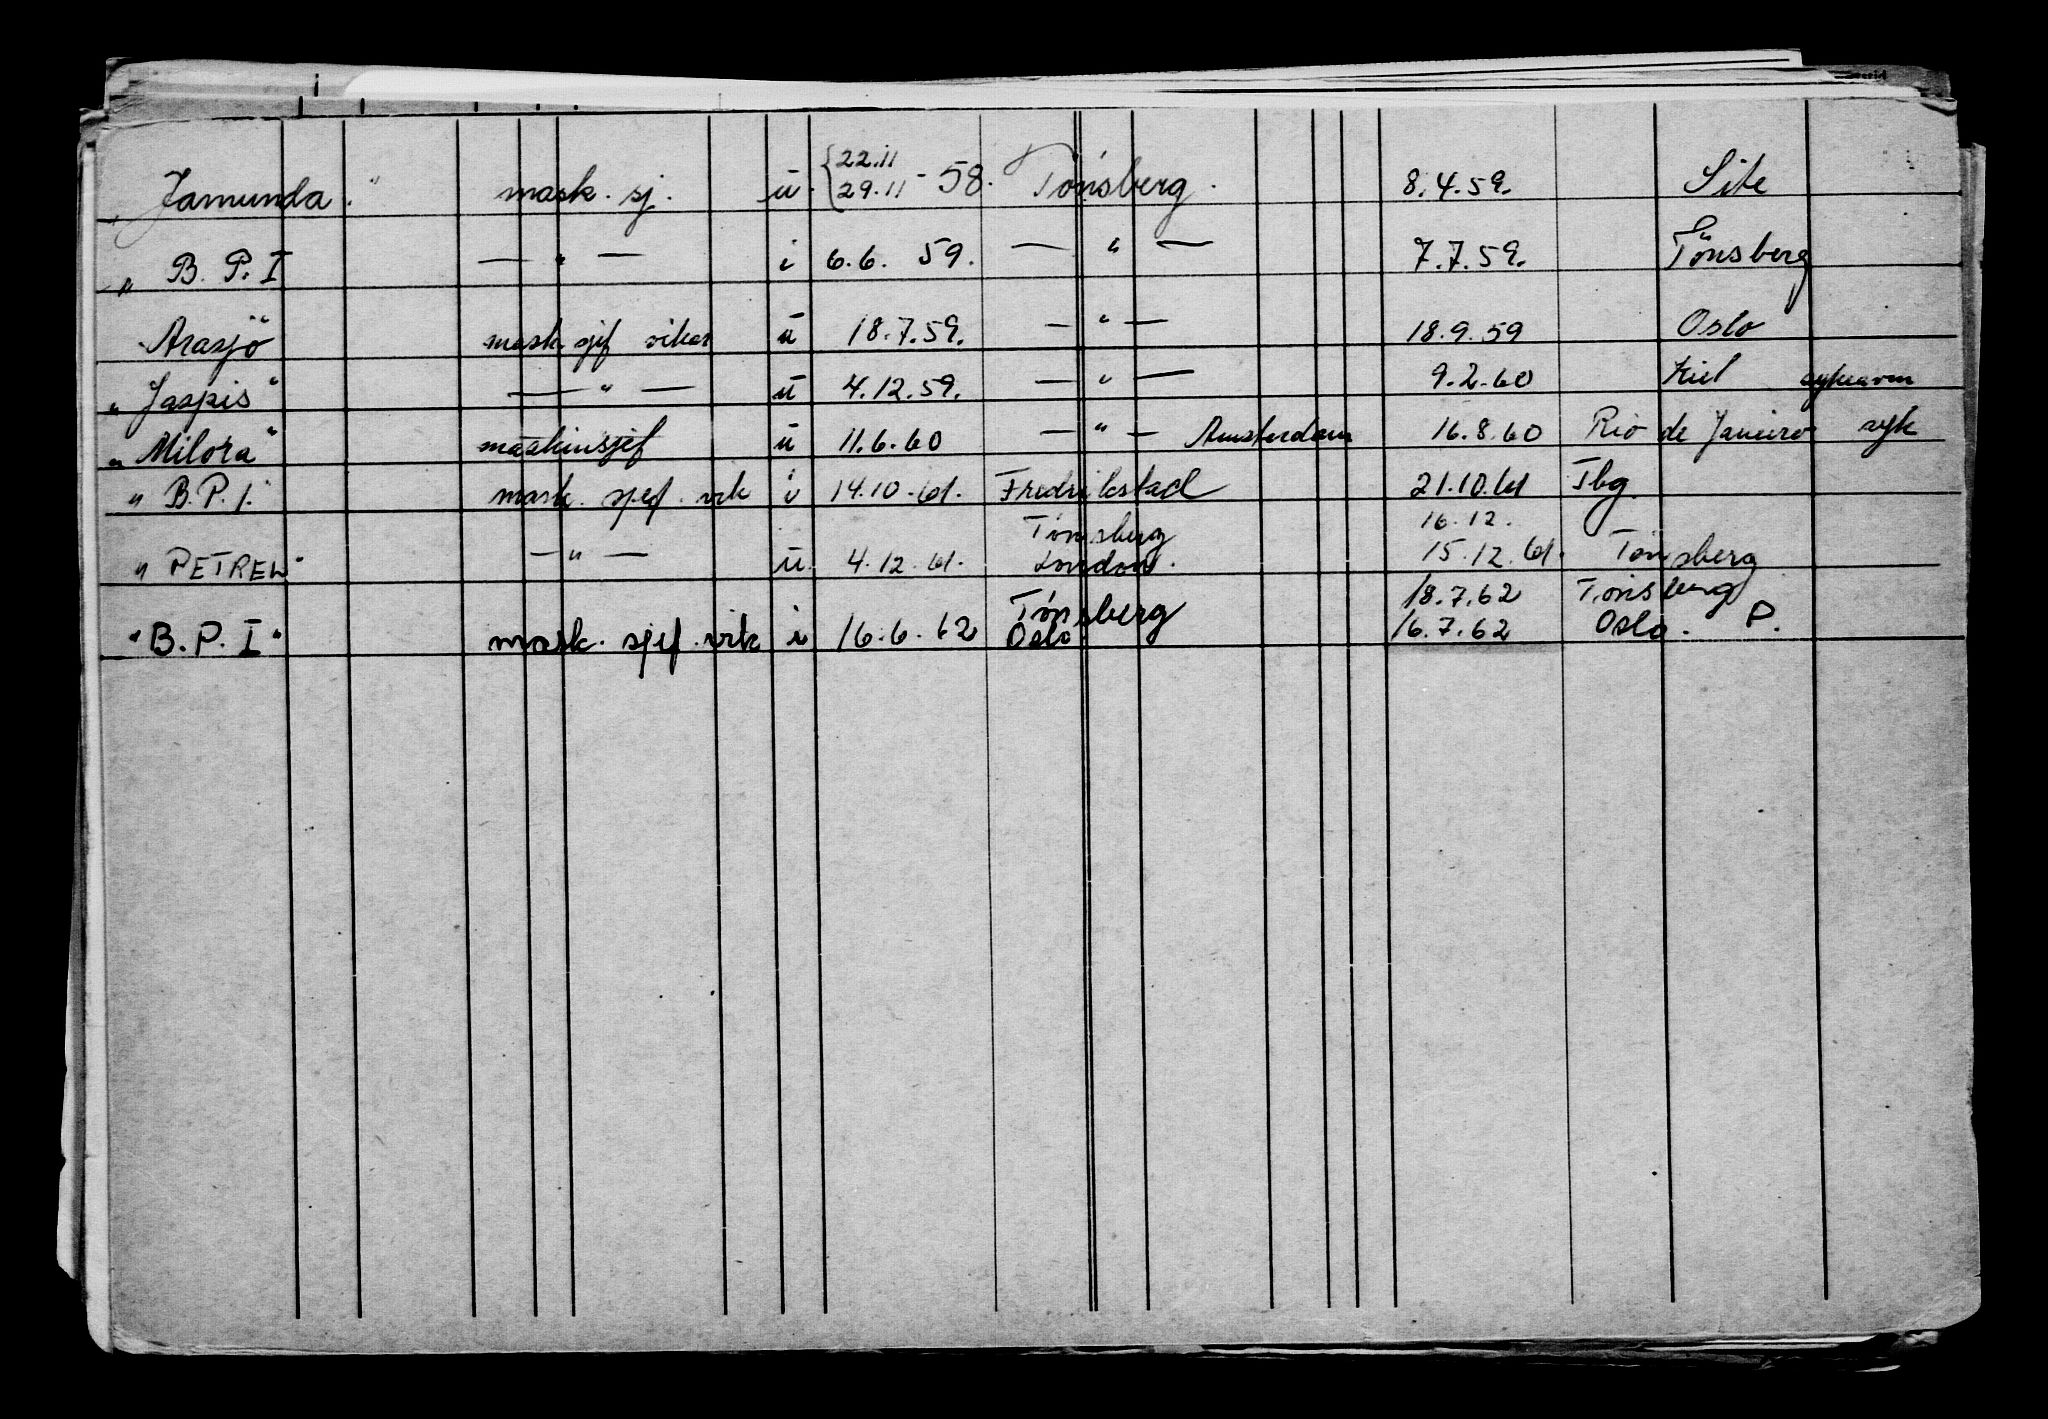 "Jamunda." mask. sj. ū. {22.11 29.11 - 58. Tönsberg. 8.4.59. Site
"B. P. I — " — i 6.6. 59. — " — 7.7.59. Tönsberg
"Arasjö" mask sjef vikar ū 18.7.59. — " — 18.9.59 Oslo
"Jaspis" — " — ū 4.12.59. — " — 9.2.60 Kiel
"Milora" maskinsjef ū 11.6.60 — " — Amsterdam 16.8.60 Rio de Janeiro syk
"B.P.1. mask. sjef. vik i 14.10.61. Fredrikstad 21.10.61 Tbg.
Tønsberg 16.12.
"PETREL" — " — ū. 4.12.61. London. 15.12.61. Tønsberg
Tønsberg 18.7.62 Tønsberg
"B.P.I" mask. sjef. vik i 16.6.62 Oslo 16.7.62 Oslo. P.